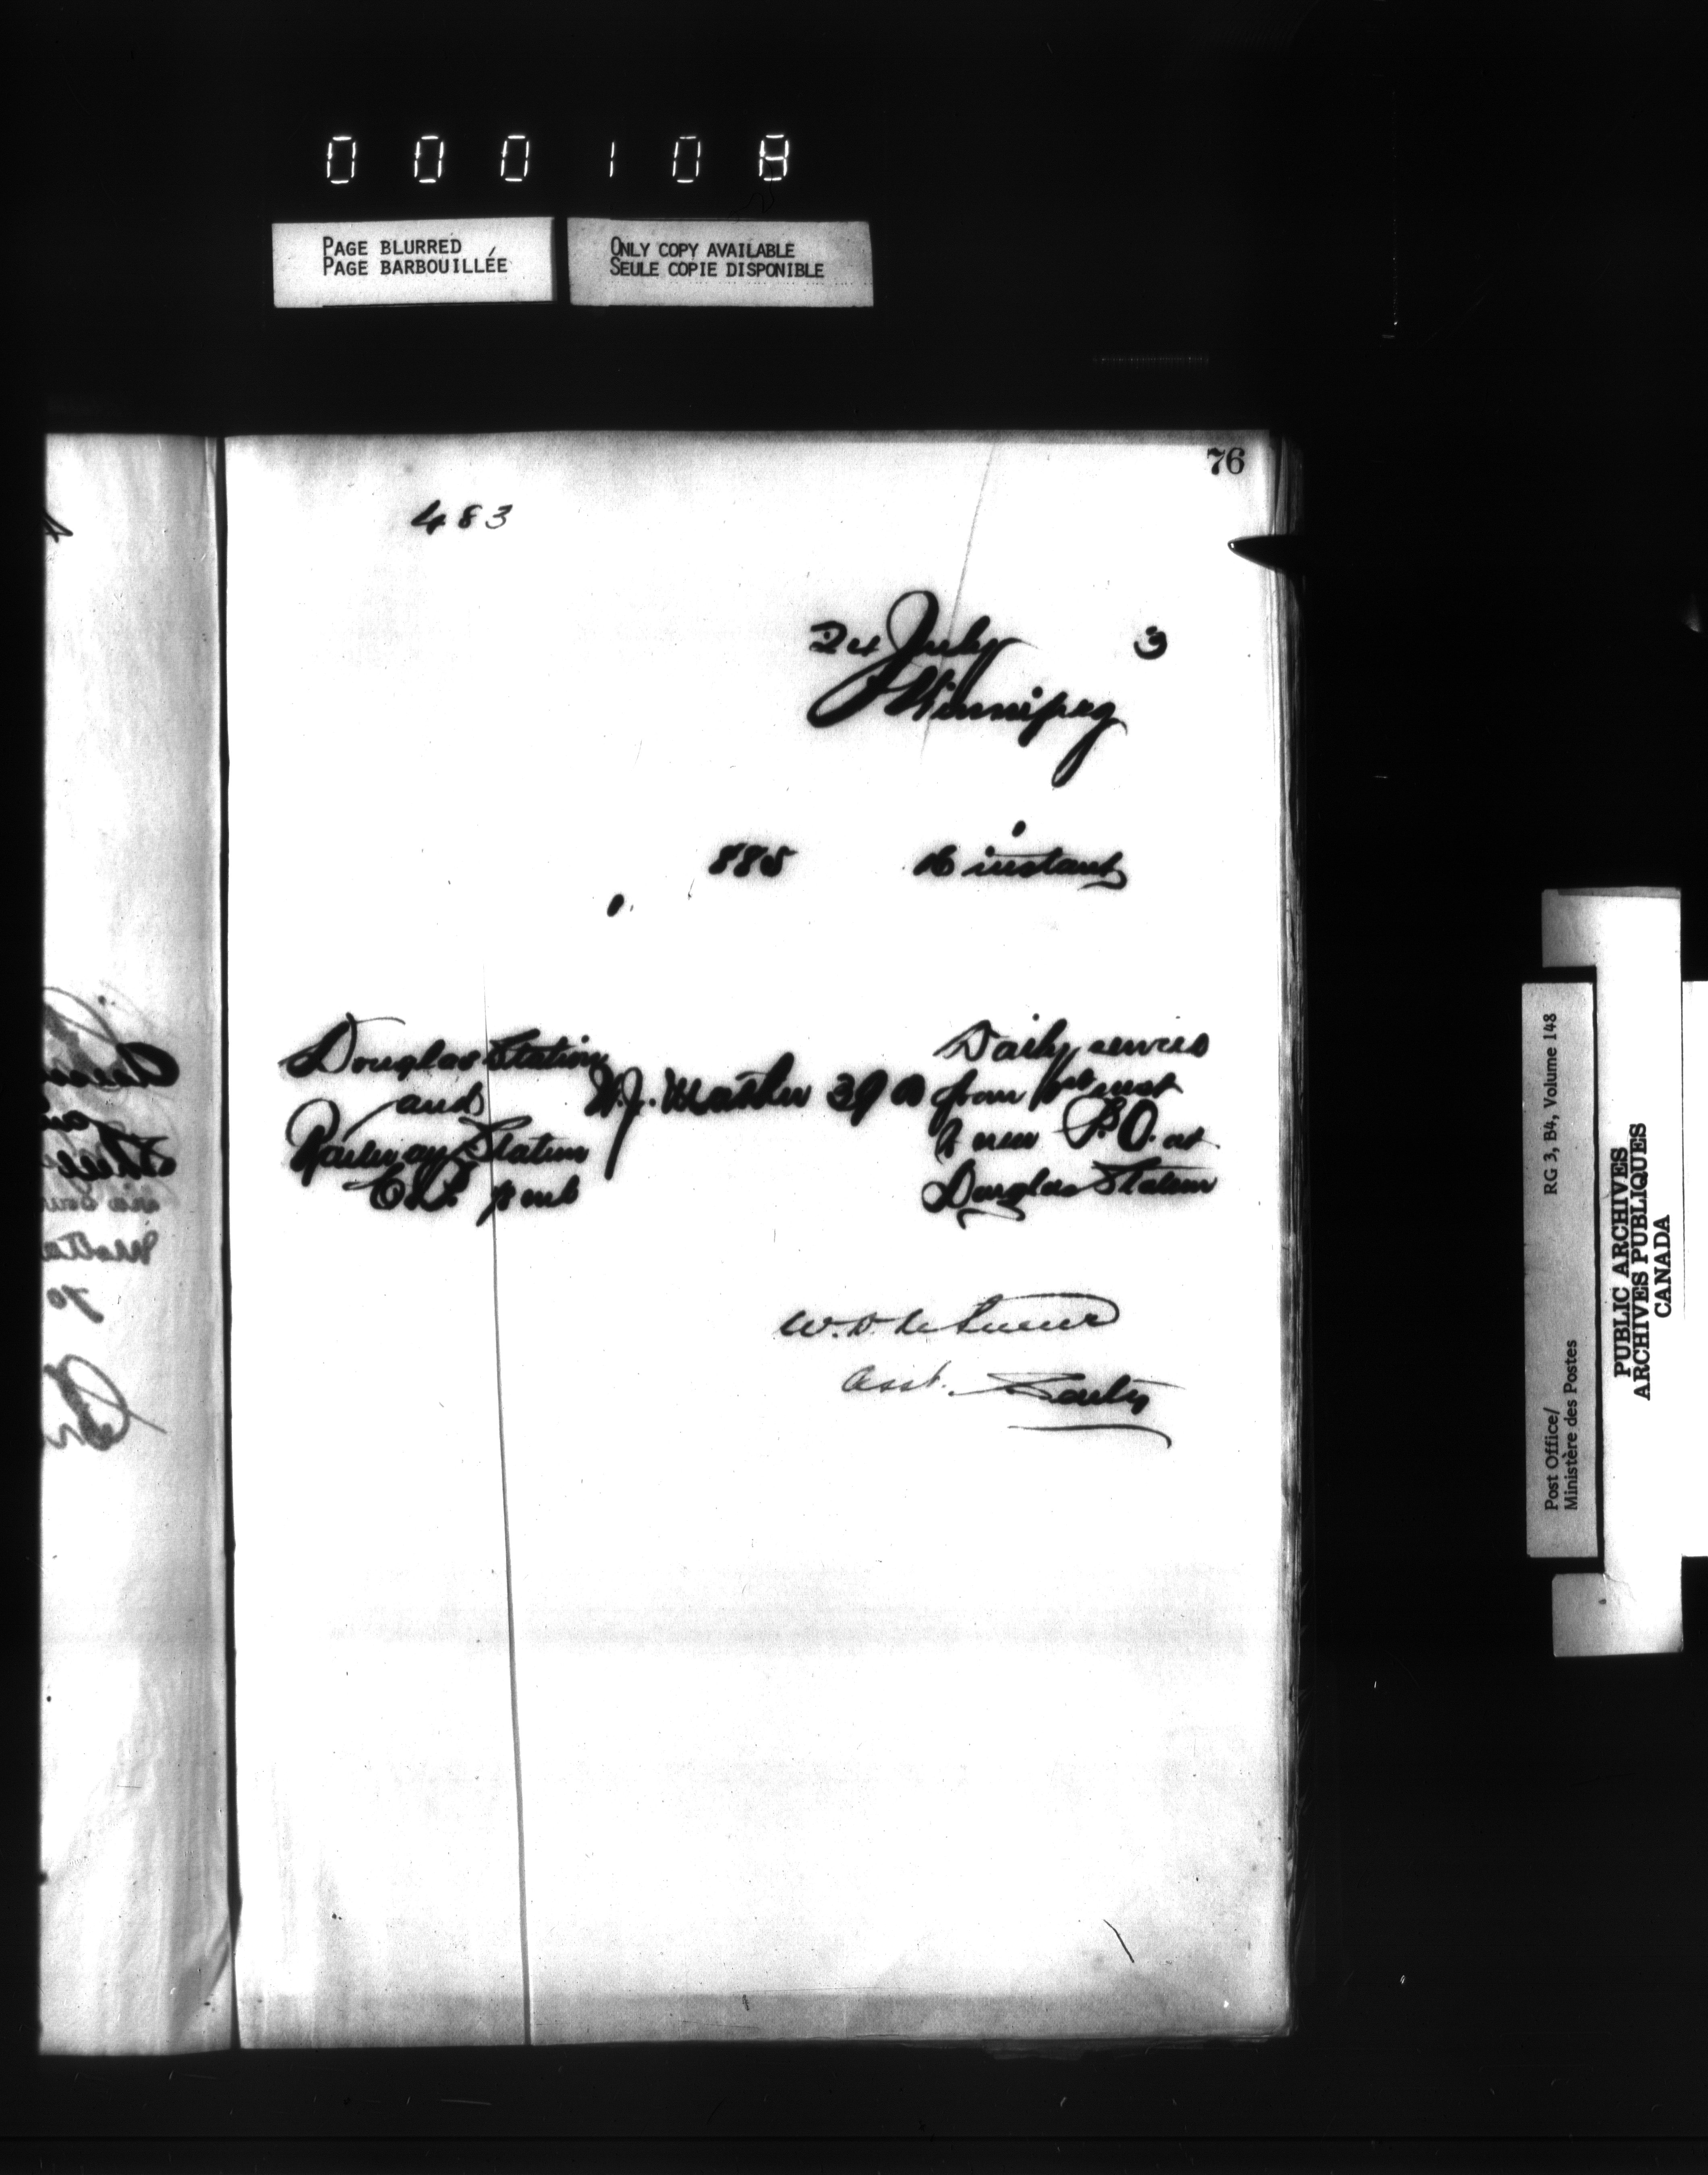 000108
PAGE BLURRED
PAGE BARBOUILLÉE
ONLY COPY AVAILABLE
SEULE COPIE DISPONIBLE
76
483
24 July 3
Winnipeg
885 instant
Douglas Station
and
Railway Station
W.J. 39
Daily service
from 1st
P.O. at
Douglas Station
W. D. LeSueur
Asst. Secretary
RG 3, B4, Volume 148
Post Office/
Ministère des Postes
PUBLIC ARCHIVES
ARCHIVES PUBLIQUES
CANADA